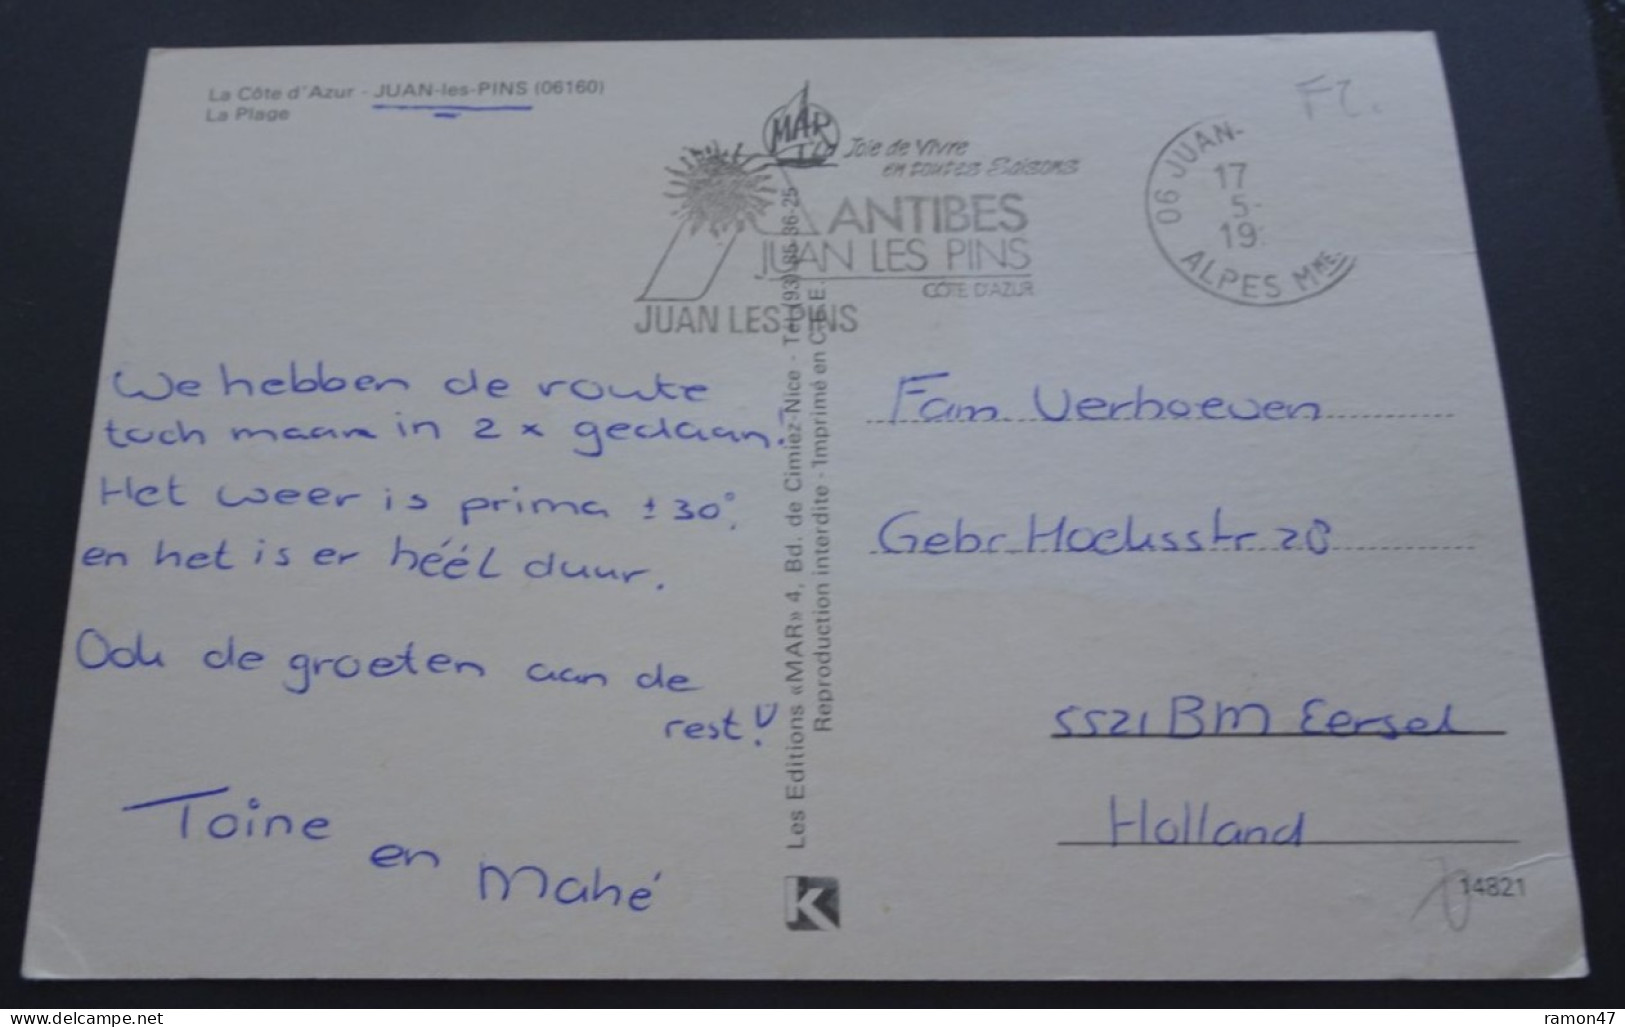 La Côte d'Azur - JUAN-les-PINS (06160)
La Plage
MAR
Joie de Vivre
en toutes Saisons
ANTIBES
JUAN LES PINS
CÔTE D'AZUR
JUAN LES PINS
06 JUAN-
17
5-
19
ALPES MME
We hebben de route
toch maar in 2 x gedaan.
Het weer is prima ± 30°.
en het is er héél duur.
Ook de groeten aan de
rest!
Toine
en
Mahé
Les Editions «MAR» 4, Bd. de Cimiez-Nice - Tél (93) 85-36-25
Reproduction interdite - Imprimé en C.E.E.
K
Fam Verhoeven
Gebr Hoeksstr 28
5521 BM Eersel
Holland
14821
Delcampe.net
ramon47